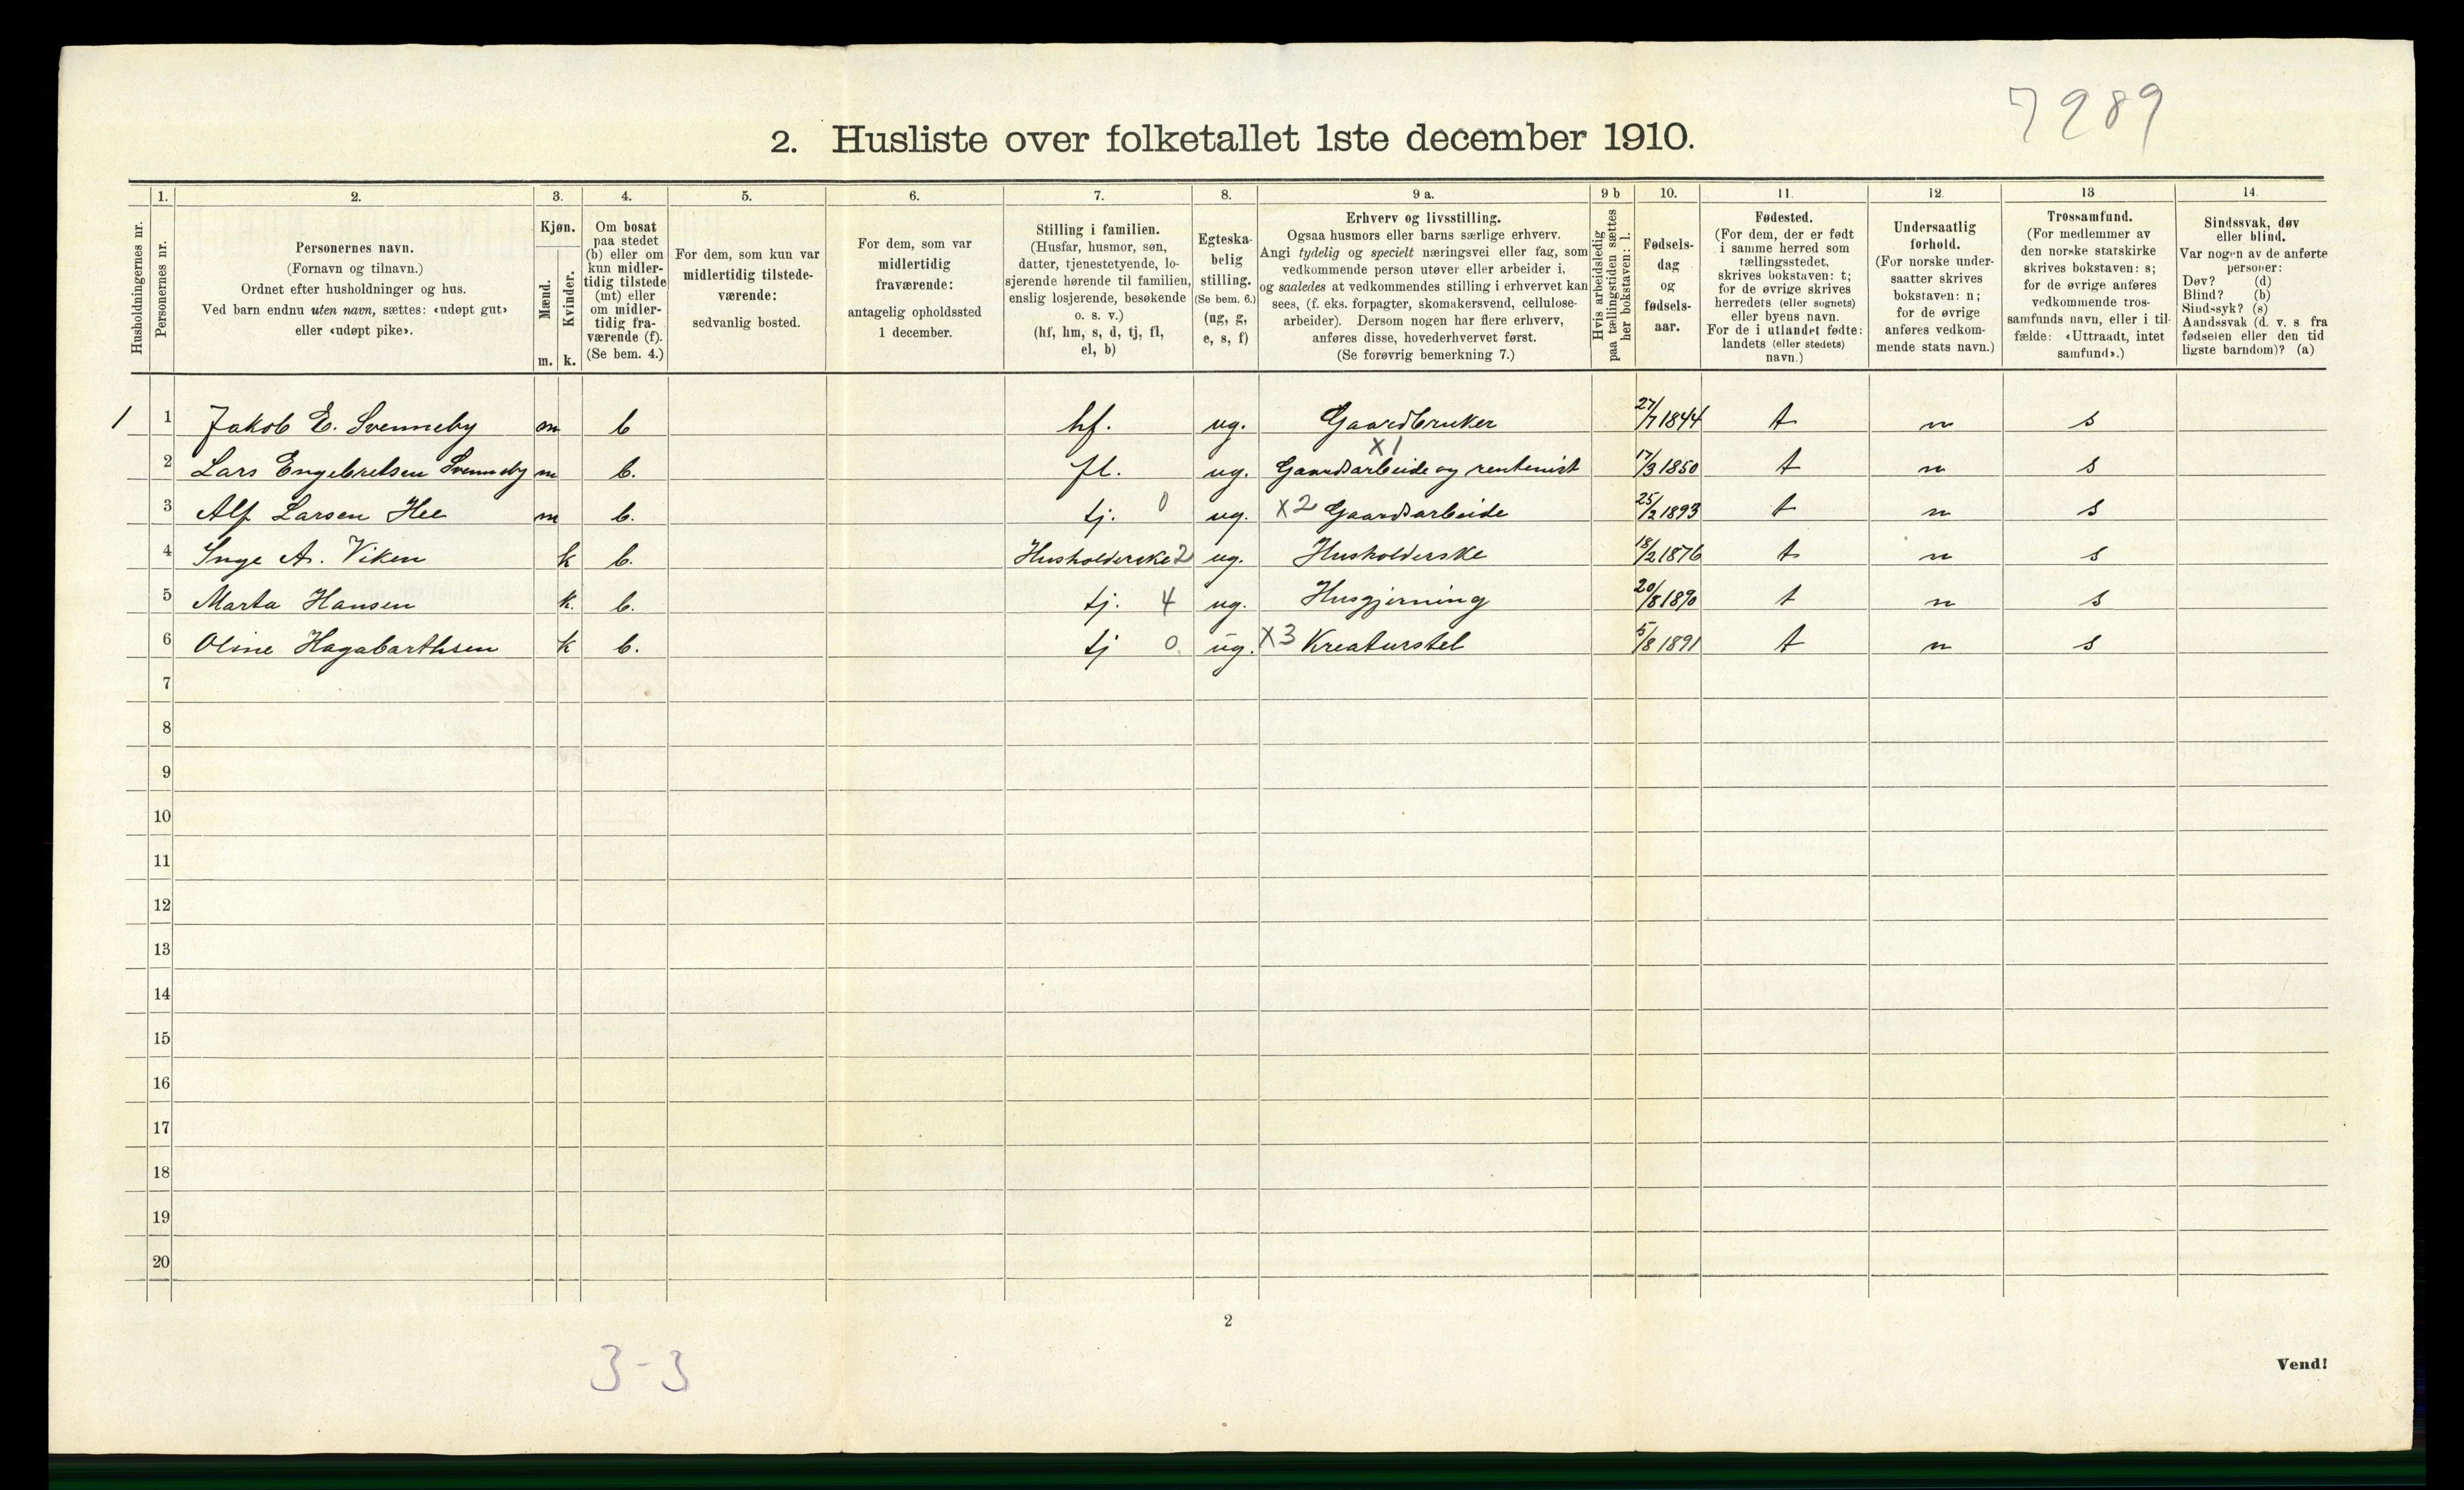 7289
2. Husliste over folketallet 1ste december 1910.
Husholdningernes nr.
1.
Personernes nr.
2.
Personernes navn.
(Fornavn og tilnavn.)
Ordnet efter husholdninger og hus.
Ved barn endnu uten navn, sættes: «udøpt gut»
eller «udøpt pike».
3.
Kjøn.
Mænd.
Kvinder.
m. k.
4.
Om bosat
paa stedet
(b) eller om
kun midler-
tidig tilstede
(mt) eller
om midler-
tidig fra-
værende (f).
(Se bem. 4.)
5.
For dem, som kun var
midlertidig tilstede-
værende:
sedvanlig bosted.
6.
For dem, som var
midlertidig
fraværende:
antagelig opholdssted
1 december.
7.
Stilling i familien.
(Husfar, husmor, søn,
datter, tjenestetyende, lo-
sjerende hørende til familien,
enslig losjerende, besøkende
o. s. v.)
(hf, hm, s, d, tj, fl,
el, b)
8.
Egteska-
belig
stilling.
(Se bem. 6.)
(ug, g,
e, s, f)
9 a.
Erhverv og livsstilling.
Ogsaa husmors eller barns særlige erhverv.
Angi tydelig og specielt næringsvei eller fag, som
vedkommende person utøver eller arbeider i,
og saaledes at vedkommendes stilling i erhvervet kan
sees, (f. eks. forpagter, skomakersvend, cellulose-
arbeider). Dersom nogen har flere erhverv,
anføres disse, hovederhvervet først.
(Se forøvrig bemerkning 7.)
9 b
Hvis arbeidsledig
paa tællingstiden sættes
her bokstaven: l.
10.
Fødsels-
dag
og
fødsels-
aar.
11.
Fødested.
(For dem, der er født
i samme herred som
tællingsstedet,
skrives bokstaven: t;
for de øvrige skrives
herredets (eller sognets)
eller byens navn.
For de i utlandet fødte:
landets (eller stedets)
navn.)
12.
Undersaatlig
forhold.
(For norske under-
saatter skrives
bokstaven: n;
for de øvrige
anføres vedkom-
mende stats navn.)
13
Trossamfund.
(For medlemmer av
den norske statskirke
skrives bokstaven: s;
for de øvrige anføres
vedkommende tros-
samfunds navn, eller i til-
fælde: «Uttraadt, intet
samfund».)
14.
Sindssvak, døv
eller blind.
Var nogen av de anførte
personer:
Døv? (d)
Blind? (b)
Sindssyk? (s)
Aandssvak (d. v. s. fra
fødselen eller den tid
ligste barndom)? (a)
1 1 Jakob E. Svenneby m b hf. ug. Gaardbruker 27/7 1844 t n s
X1
2 Lars Engebretsen Svenneby m b. fl. ug. Gaardsarbeide og rentenist 17/3 1850 t n s
3 Alf Larsen Hee m b. tj. 0 ug. X2 Gaardsarbeide 25/2 1893 t n s
4 Inge A. Viken k b. Husholderske 2 ug. Husholderske 18/2 1876 t n s
5 Marta Hansen k. b. tj. 4 ug. Husgjerning 20/8 1890 t n s
6 Oline Hagabarthsen k b. tj 0 ug. X3 Kreaturstel 5/8 1891 t n s
7
8
9
10
11
12
13
14
15
16
17
18
19
20
2
3-3
Vend!